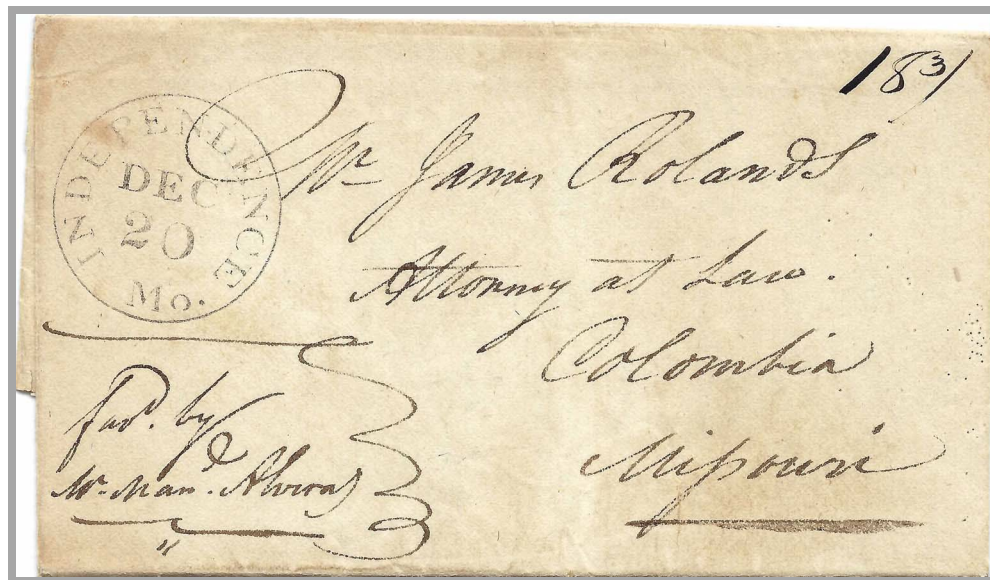 18 3/
INDEPENDENCE
DEC
20
Mo.
Mr James Rolands
Attorney at Law.
Colombia
Missouri
favd. by
Mr. Manl. Alvira